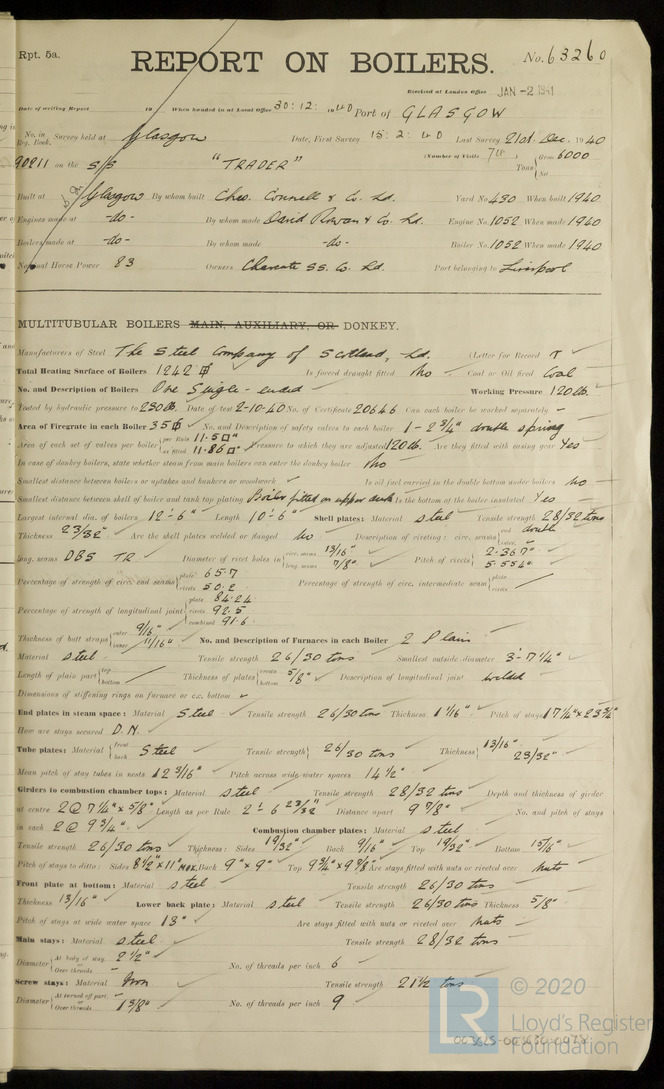 Rpt. 5a. REPORT ON BOILERS. No. 63260
Received at London Office JAN -2 1941
Date of writing Report 19 When handed in at Local Office 30.12. 1940 Port of GLASGOW
No. in Reg. Book. Survey held at Glasgow Date, First Survey 15.2.40 Last Survey 21st Dec. 1940
90211 on the S/S "TRADER" (Number of Visits ) Tons Gross 6000 Net
Built at Glasgow By whom built Chas. Connell & Co. Ld. Yard No. 430 When built 1940
Engines made at -do- By whom made David Rowan & Co. Ld. Engine No. 1052 When made 1940
Boilers made at -do- By whom made -do- Boiler No. 1052 When made 1940
Nominal Horse Power 83 Owners Charente SS. Co. Ld. Port belonging to Liverpool
MULTITUBULAR BOILERS MAIN, AUXILIARY, OR DONKEY.
Manufacturers of Steel The Steel Company of Scotland, Ld. (Letter for Record
Total Heating Surface of Boilers 1242 Is forced draught fitted No Coal or Oil fired Coal
No. and Description of Boilers One Single-ended Working Pressure 120 lb.
Tested by hydraulic pressure to 230 lb. Date of test 2-10-40 No. of Certificate 20646 Can each boiler be worked separately -
Area of Firegrate in each Boiler 35 No. and Description of safety valves to each boiler 1 - 2 3/4" double spring
Area of each set of valves per boiler per Rule 11.50 □" as fitted 11.86 □" Pressure to which they are adjusted 120 lb. Are they fitted with easing gear Yes
In case of donkey boilers, state whether steam from main boilers can enter the donkey boiler No
Smallest distance between boilers or uptakes and bunkers or woodwork Is oil fuel carried in the double bottom under boilers No
Smallest distance between shell of boiler and tank top plating Boiler fitted on upper deck Is the bottom of the boiler insulated Yes
Largest internal dia. of boilers 12'-6" Length 10'-6" Shell plates: Material steel Tensile strength 28/32 tons
Thickness 23/32" Are the shell plates welded or flanged No Description of riveting: circ. seams end double inter. -
long. seams DBS TR Diameter of rivet holes in circ. seams 13/16" long. seams 7/8" Pitch of rivets 2.367" 5.554"
Percentage of strength of circ. end seams plate 65.7 rivets 50.2 Percentage of strength of circ. intermediate seam plate rivets
Percentage of strength of longitudinal joint plate 84.24 rivets 92.5 combined 91.6
Thickness of butt straps outer 9/16" inner 11/16" No. and Description of Furnaces in each Boiler 2 Plain
Material steel Tensile strength 26/30 tons Smallest outside diameter 3'-7 1/4"
Length of plain part top bottom Thickness of plates crown bottom 5/8" Description of longitudinal joint welded
Dimensions of stiffening rings on furnace or c.c. bottom
End plates in steam space: Material Steel Tensile strength 26/30 tons Thickness 1 1/16" Pitch of stays 17 1/4" x 23 3/4"
How are stays secured D.N.
Tube plates: Material front back Steel Tensile strength 26/30 tons Thickness 13/16" 23/32"
Mean pitch of stay tubes in nests 12 3/16" Pitch across wide water spaces 14 1/2"
Girders to combustion chamber tops: Material steel Tensile strength 28/32 tons Depth and thickness of girder
at centre 2 @ 7 1/4" x 5/8" Length as per Rule 2'-6 23/32" Distance apart 9 7/8" No. and pitch of stays
in each 2 @ 9 3/4" Combustion chamber plates: Material steel
Tensile strength 26/30 tons Thickness: Sides 19/32" Back 9/16" Top 19/32" Bottom 15/16"
Pitch of stays to ditto: Sides 8 1/2" x 11" MAX. Back 9" x 9" Top 9 3/4" x 9 7/8" Are stays fitted with nuts or riveted over Nuts
Front plate at bottom: Material steel Tensile strength 26/30 tons
Thickness 13/16" Lower back plate: Material steel Tensile strength 26/30 tons Thickness 5/8"
Pitch of stays at wide water space 13" Are stays fitted with nuts or riveted over Nuts
Main stays: Material steel Tensile strength 28/32 tons
Diameter At body of stay, or Over threads 2 1/2" - No. of threads per inch 6
Screw stays: Material Iron Tensile strength 21 1/2 tons
Diameter At turned off part, or Over threads 1 3/8" No. of threads per inch 9
LR © 2020
Lloyd's Register
Foundation